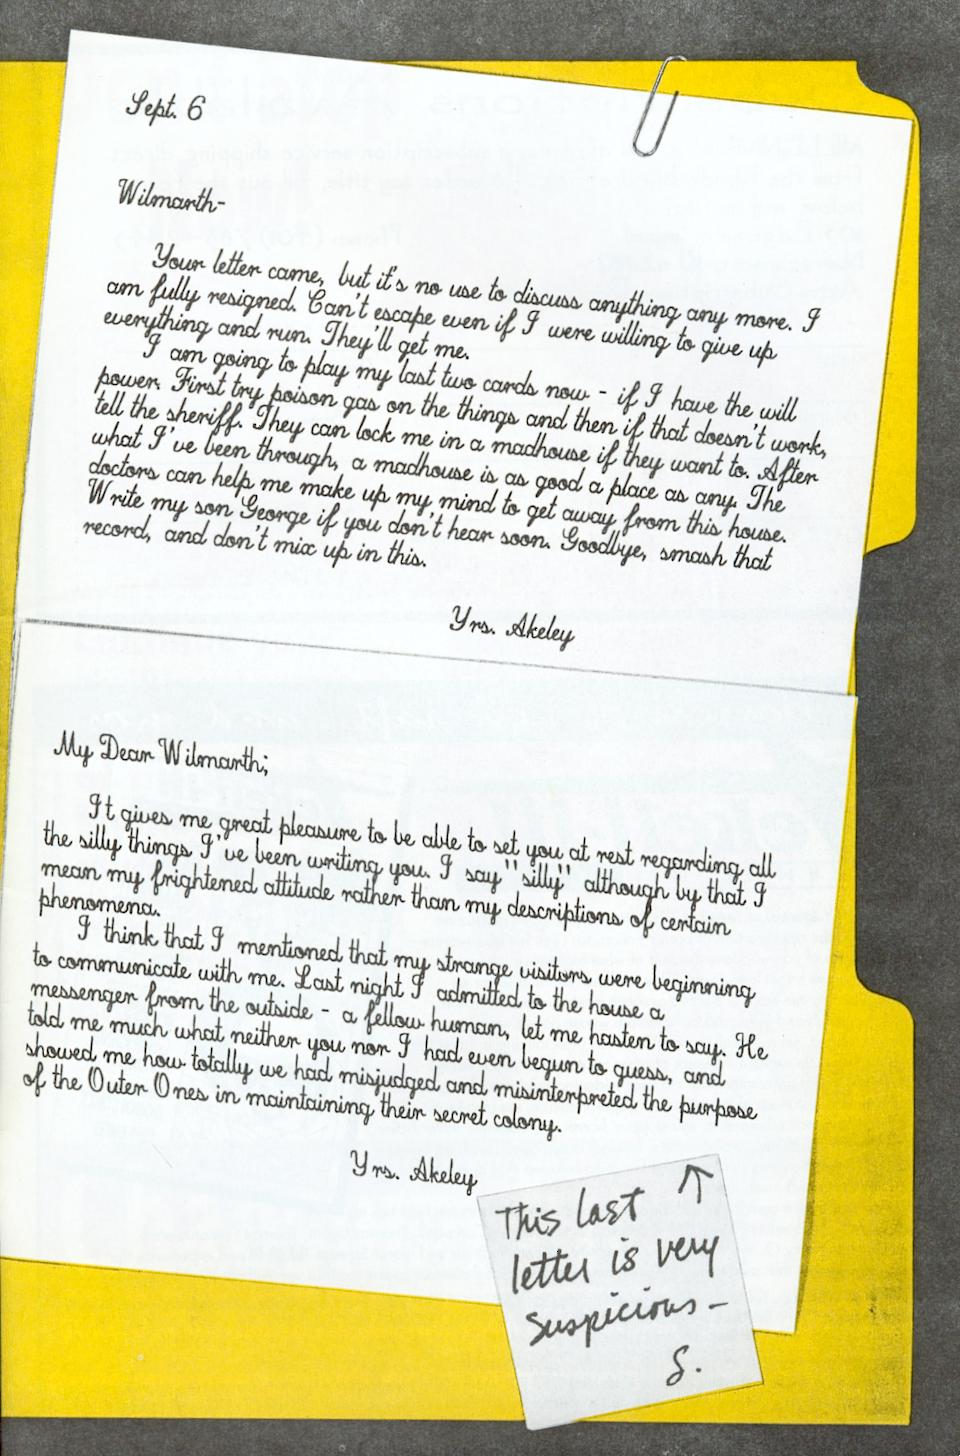 Sept. 6
Wilmarth-
Your letter came, but it's no use to discuss anything any more. I
am fully resigned. Can't escape even if I were willing to give up
everything and run. They'll get me.
I am going to play my last two cards now - if I have the will
power. First try poison gas on the things and then if that doesn't work,
tell the sheriff. They can lock me in a madhouse if they want to. After
what I've been through, a madhouse is as good a place as any. The
doctors can help me make up my mind to get away from this house.
Write my son George if you don't hear soon. Goodbye, smash that
record, and don't mix up in this.
Yrs. Akeley
My Dear Wilmarth;
It gives me great pleasure to be able to set you at rest regarding all
the silly things I've been writing you. I say "silly" although by that I
mean my frightened attitude rather than my descriptions of certain
phenomena.
I think that I mentioned that my strange visitors were beginning
to communicate with me. Last night I admitted to the house a
messenger from the outside - a fellow human, let me hasten to say. He
told me much what neither you nor I had even begun to guess, and
showed me how totally we had misjudged and misinterpreted the purpose
of the Outer Ones in maintaining their secret colony.
Yrs. Akeley
This last
letter is very
suspicious -
S.